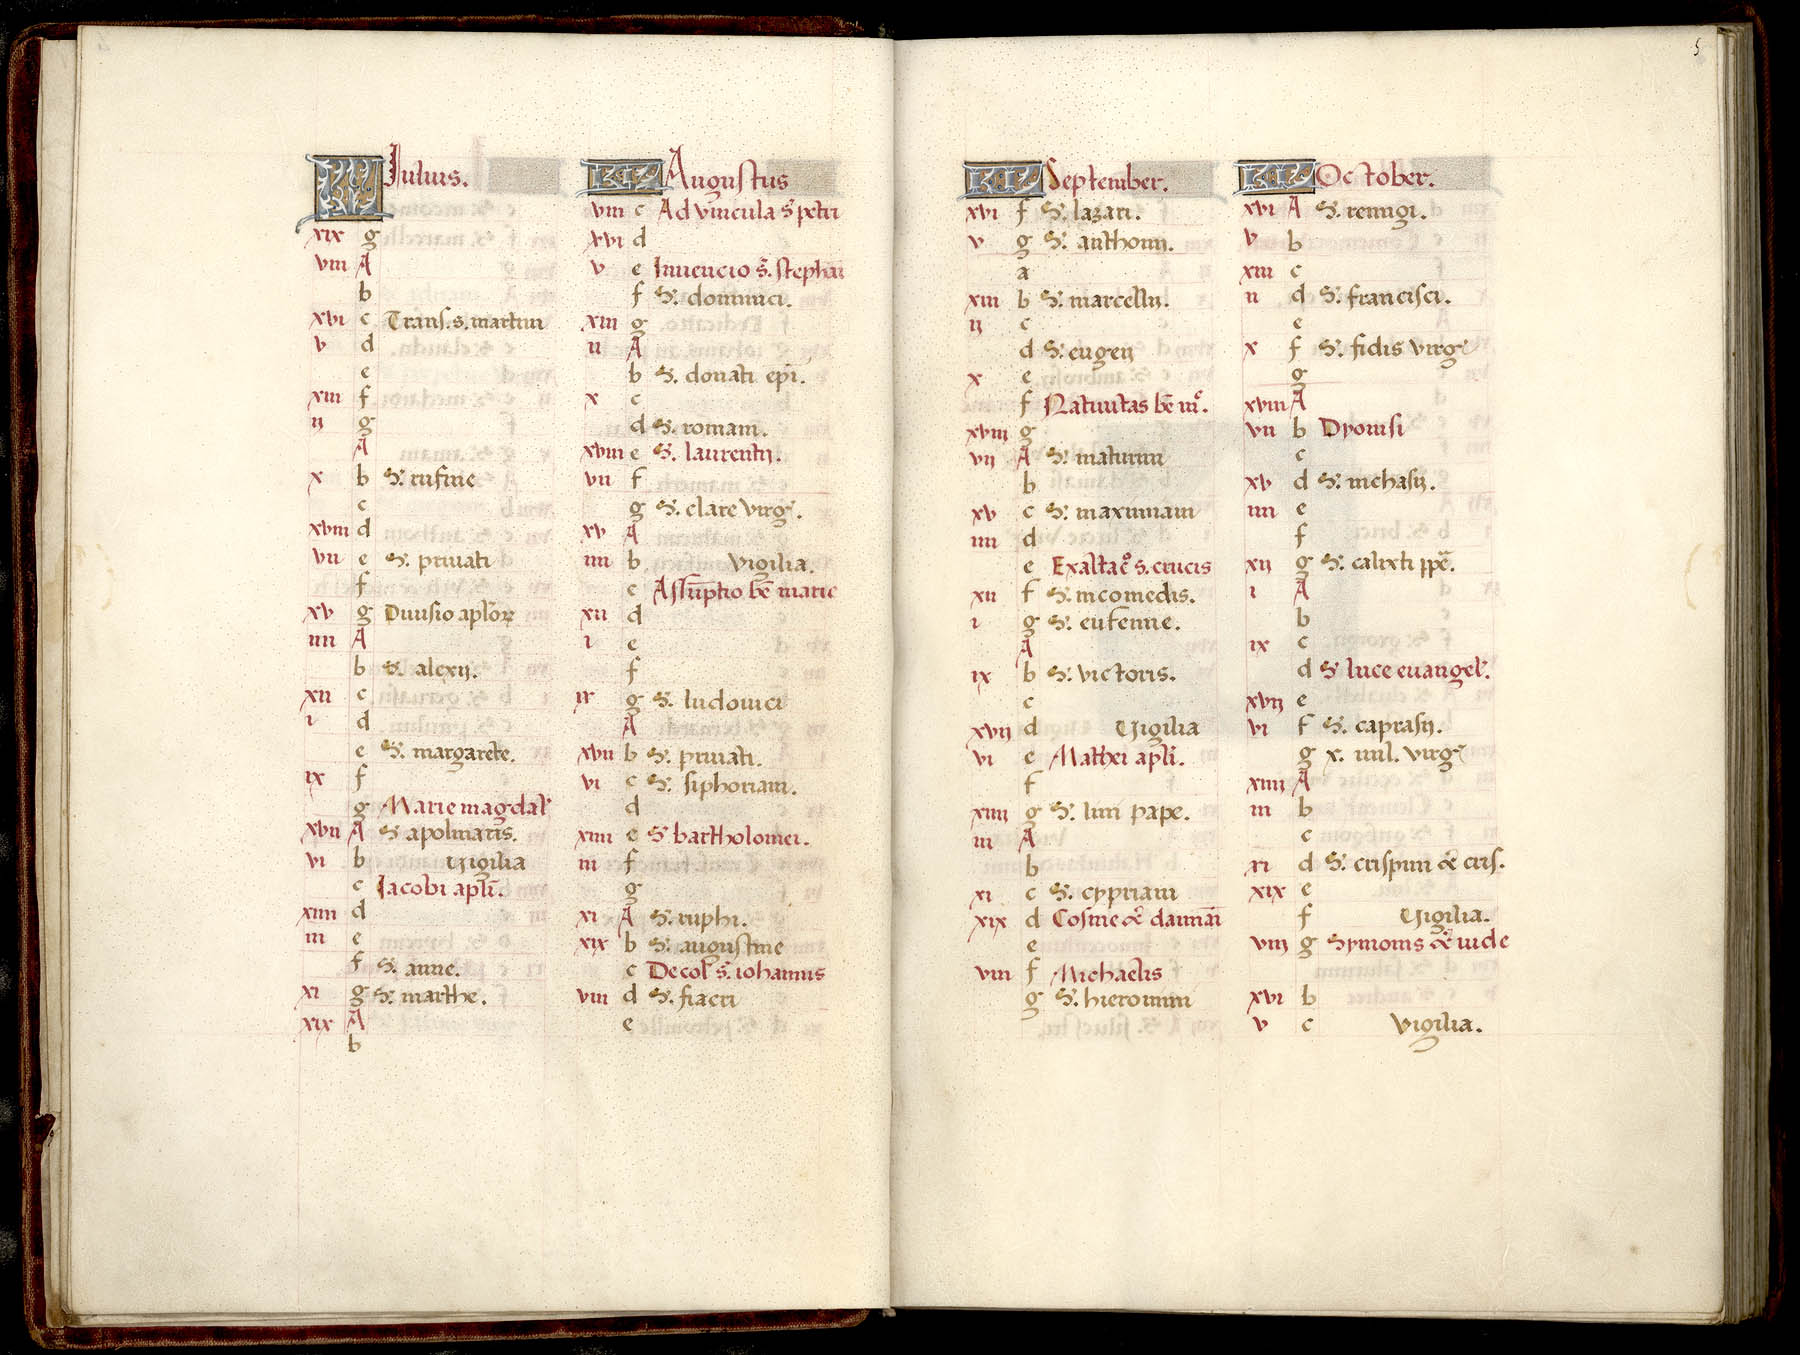 KL Iulius.
xix g
viii A
b
xvi c Trans. s. martini
v d
e
xiii f
ij g
A
x b S. rufine
c
xviii d
vii e S. priuati
f
xv g Diuisio aplōꝝ
iiii A
b S. alexij.
xii c
i d
e S. margarete.
ix f
g Marie magdal'
xvii A S apolinaris.
vi b Vigilia
c Iacobi apli̅.
xiiii d
iii e
f S. anne.
xi g S. marthe.
xix A
b
KL Augustus
viii c Ad vincula s̄ petri
xvi d
v e Inuencio s̄. stephāi
f S. dominici.
xiii g
ii A
b S. donati epi̅.
x c
d S. romani.
xviii e S. laurentij.
vii f
g S. clare virg'.
xv A
iiii b Vigilia.
c Assūptio be̅ marie
xii d
i e
f
ix g S. ludouici
A
xvii b S. priuati.
vi c S. siphoriani.
d
xiiii e S bartholomei.
iii f
g
xi A S. ruphi.
xix b S. augustine
c Decol' s̄. iohannis
viii d S. fiacri
e
5
KL September.
xvi f S. lazari.
v g S. anthonij.
a
xiii b S. marcellij.
ij c
d S. eugeij
x e
f Natiuitas be̅ me.
xviij g
vij A S. maturini
b
xv c S. maximiani
iiii d
e Exaltac̄o s. crucis
xii f S. nicomedis.
i g S. eufemie.
A
ix b S. victoris.
c
xvij d Vigilia
vi e Mathei apli̅.
f
xiiij g S. lini pape.
iii A
b
xi c S. cypriani
xix d Cosme & damiāi
e
viii f Michaelis
g S. hieronimi
KL October.
xvi A S. remigi.
v b
xiii c
ii d S. francisci.
e
x f S. fidis virg'
g
xviii A
vii b Dyonisi
c
xv d S. nichasij.
iiii e
f
xij g S. calixti ppe̅.
i A
b
ix c
d S luce euangel'.
xvij e
vi f S. caprasij.
g x. mil. virg'
xiiii A
iii b
c
xi d S. crispini & cris.
xix e
f Vigilia.
viij g Symonis & iude
A
xvi b
v c Vigilia.